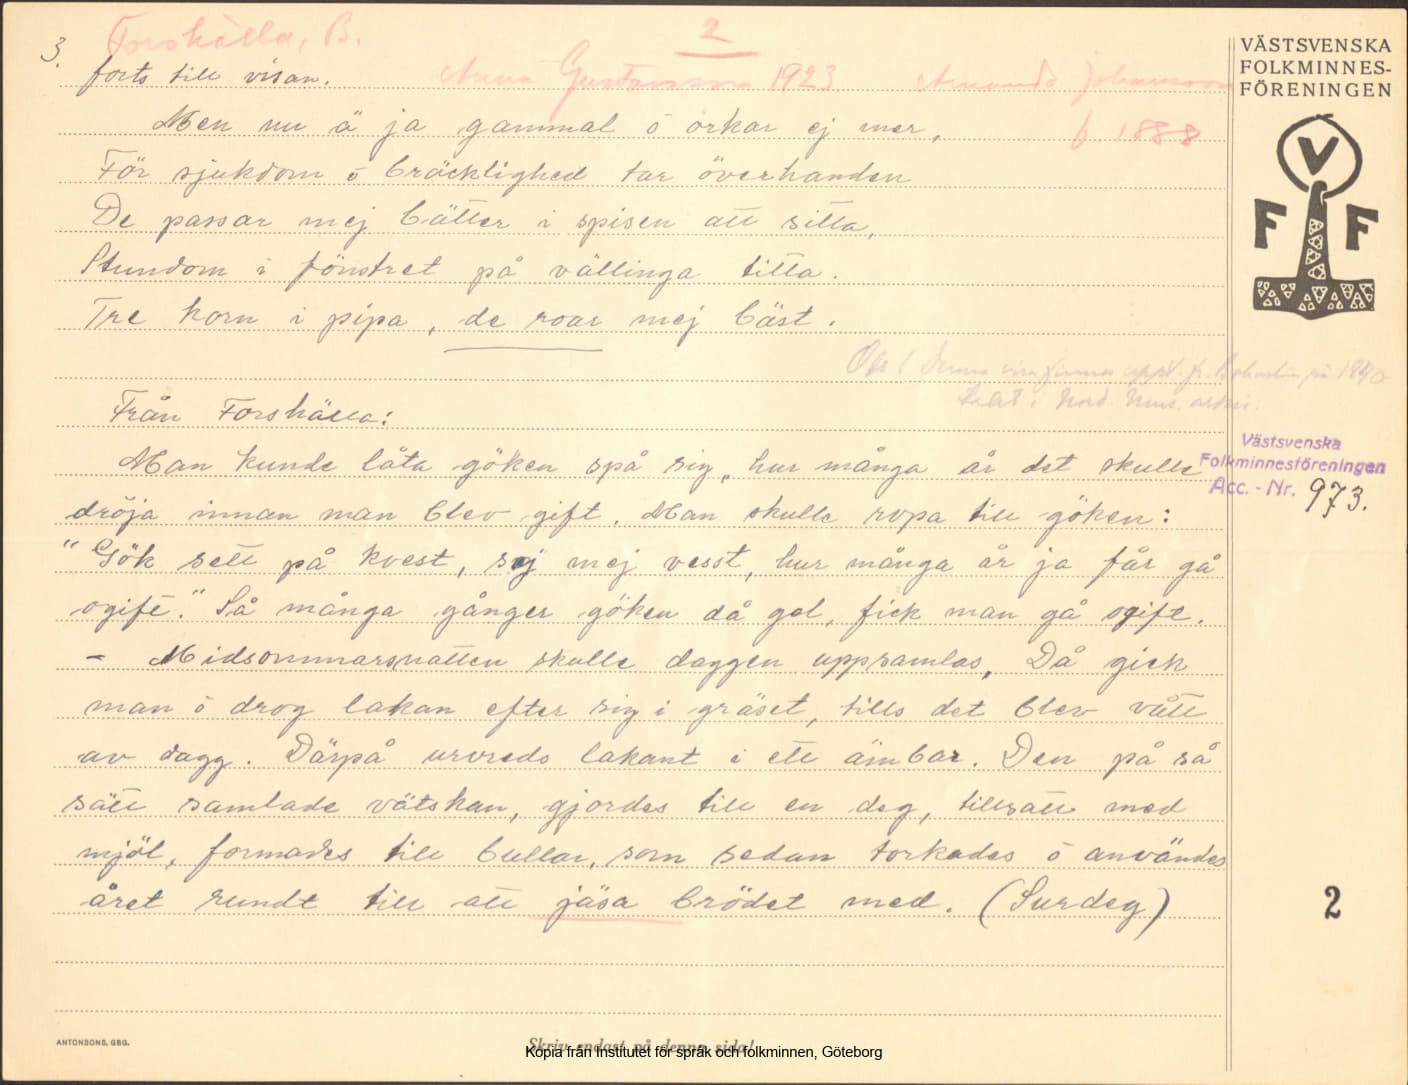 3.
Forshälla, B.
2
forts till visan.
Anna Gustavsson 1923
Amanda Johansson
f 1888
Men nu ä ja gammal ö orkar ej mer,
För sjukdom ö bräcklighed tar överhanden
De passar mej bätter i spisen att sitta,
Stundom i fönstret på vällinga titta.
Tre korn i pipa, de roar mej bäst.
Obs! Denna visa finnes uppt. fr. Bohuslän på 1840
talet i Nord. Mus. arkiv
Från Forshälla:
Man kunde låta göken spå sig, hur många år det skulle
dröja innan man blev gift. Man skulle ropa till göken:
"Gök sett på kvest, sej mej vesst, hur många år ja får gå
ogift." Så många gånger göken då gol, fick man gå ogift.
- Midsommarsnatten skulle daggen uppsamlas, Då gick
man ö drog lakan efter sig i gräset, tills det blev vått
av dagg. Därpå urvreds lakant i ett ämbar. Den på så
sätt samlade vätskan, gjordes till en deg, tillsatt med
mjöl, formades till bullar, som sedan torkades ö användes
året rundt till att jäsa brödet med. (Surdeg)
VÄSTSVENSKA
FOLKMINNES-
FÖRENINGEN
V
F F
Västsvenska
Folkminnesföreningen
Acc.-Nr. 973.
2
ANTONSONS, GBG.
Skriv endast på denna sida!
Kopia från Institutet för språk och folkminnen, Göteborg